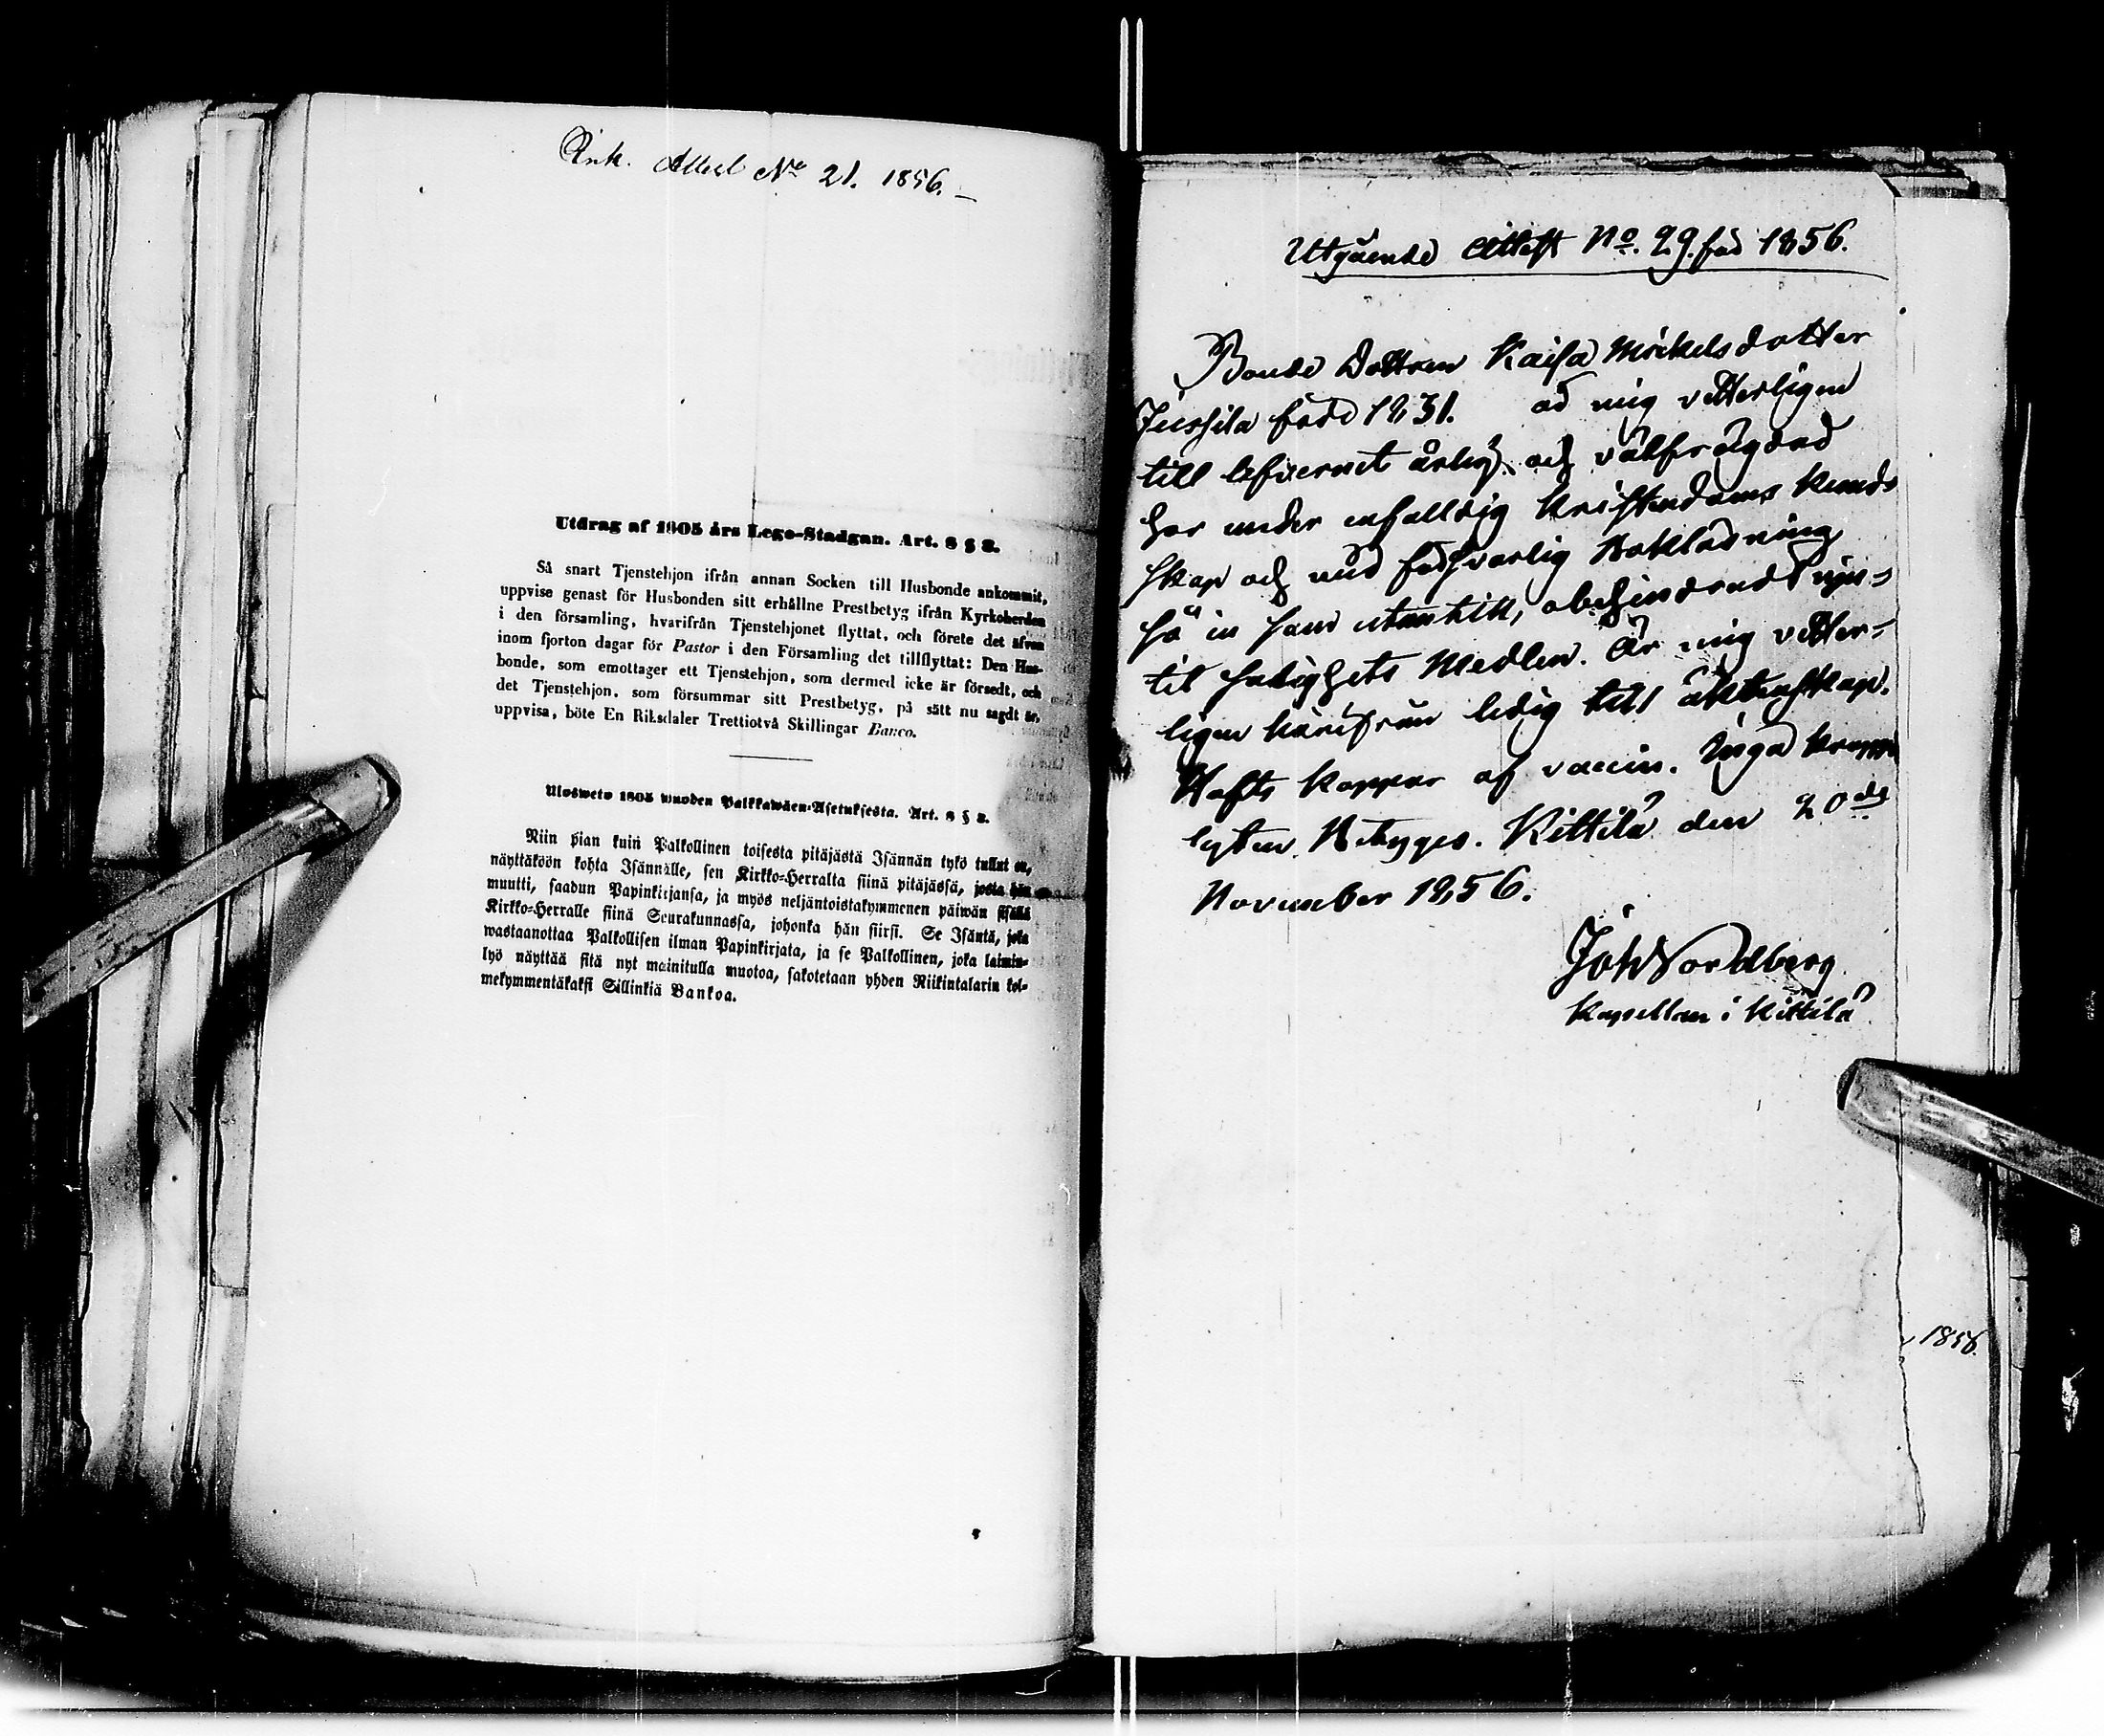 Ank. Attest No 21. 1856.
Utdrag af 1805 års Lego-Stadgan. Art. 8 § 2.
Så snart Tjenstehjon ifrån annan Socken till Husbonde ankommit,
uppvise genast för Husbonden sitt erhållne Prestbetyg ifrån Kyrkoherden
i den församling, hvarifrån Tjenstehjonet flyttat, och förete det äfven
inom fjorton dagar för Pastor i den Församling det tillflyttat: Den Hus-
bonde, som emottager ett Tjenstehjon, som dermed icke är försedt, och
det Tjenstehjon, som försummar sitt Prestbetyg, på sätt nu sagdt är,
uppvisa, böte En Riksdaler Trettiotvå Skillingar Banco.
Ulosweto 1805 wuoden Palkkawäen-Asetuksesta. Art. 8 § 2.
Niin pian kuin Palkollinen toisesta pitäjästä Isännän tykö tullut on,
näyttäköön kohta Isännälle, sen Kirkko-Herralta siinä pitäjässä, josta hän
muutti, saadun Papinkirjansa, ja myös neljäntoistakymmenen päiwän sisällä
Kirkko-Herralle siinä Seurakunnassa, johonka hän siirsi. Se Isäntä, joka
wastaanottaa Palkollisen ilman Papinkirjata, ja se Palkollinen, joka laimin-
lyö näyttää sitä nyt mainitulla muotoa, sakotetaan yhden Riikintalarin kol-
mekymmentäkaksi Sillinkiä Bankoa.
Utgående Attest No. 29. för 1856.
Bonde Dottren Kaisa Mickelsdotter
Jussila född 1831. är mig vetterligen
till lefvernet ärlig och välfrägdad
har under enfalldig Kristendoms kund-
skap och med försvarlig Bokläsning
så in som utantill, obehindrad nju-
til salighets Medlen. Är mig vetter-
ligen härifrån ledig till äktenskap.
Hafts koppor af vaccin. Inga kropps
lyten. Betyges. Kittilä den 20de
November 1856.
Joh Nordberg
Kapellan i Kittilä
1856.